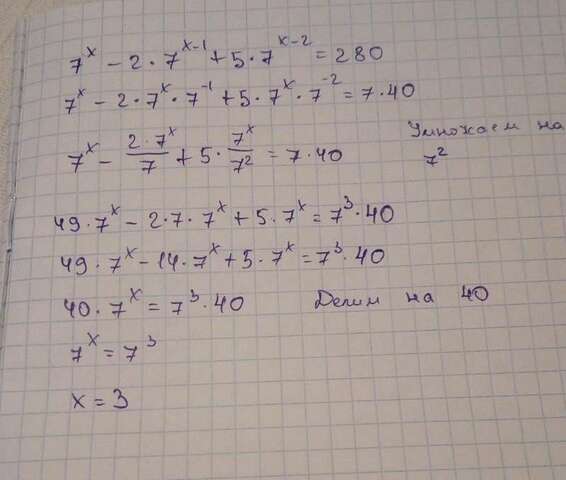 7ˣ - 2 · 7ˣ⁻¹ + 5 · 7ˣ⁻² = 280
7ˣ - 2 · 7ˣ · 7⁻¹ + 5 · 7ˣ · 7⁻² = 7 · 40
7ˣ - (2 · 7ˣ)/7 + 5 · 7ˣ/7² = 7 · 40 Умножаем на 7²
49 · 7ˣ - 2 · 7 · 7ˣ + 5 · 7ˣ = 7³ · 40
49 · 7ˣ - 14 · 7ˣ + 5 · 7ˣ = 7³ · 40
40 · 7ˣ = 7³ · 40 Делим на 40
7ˣ = 7³
x = 3